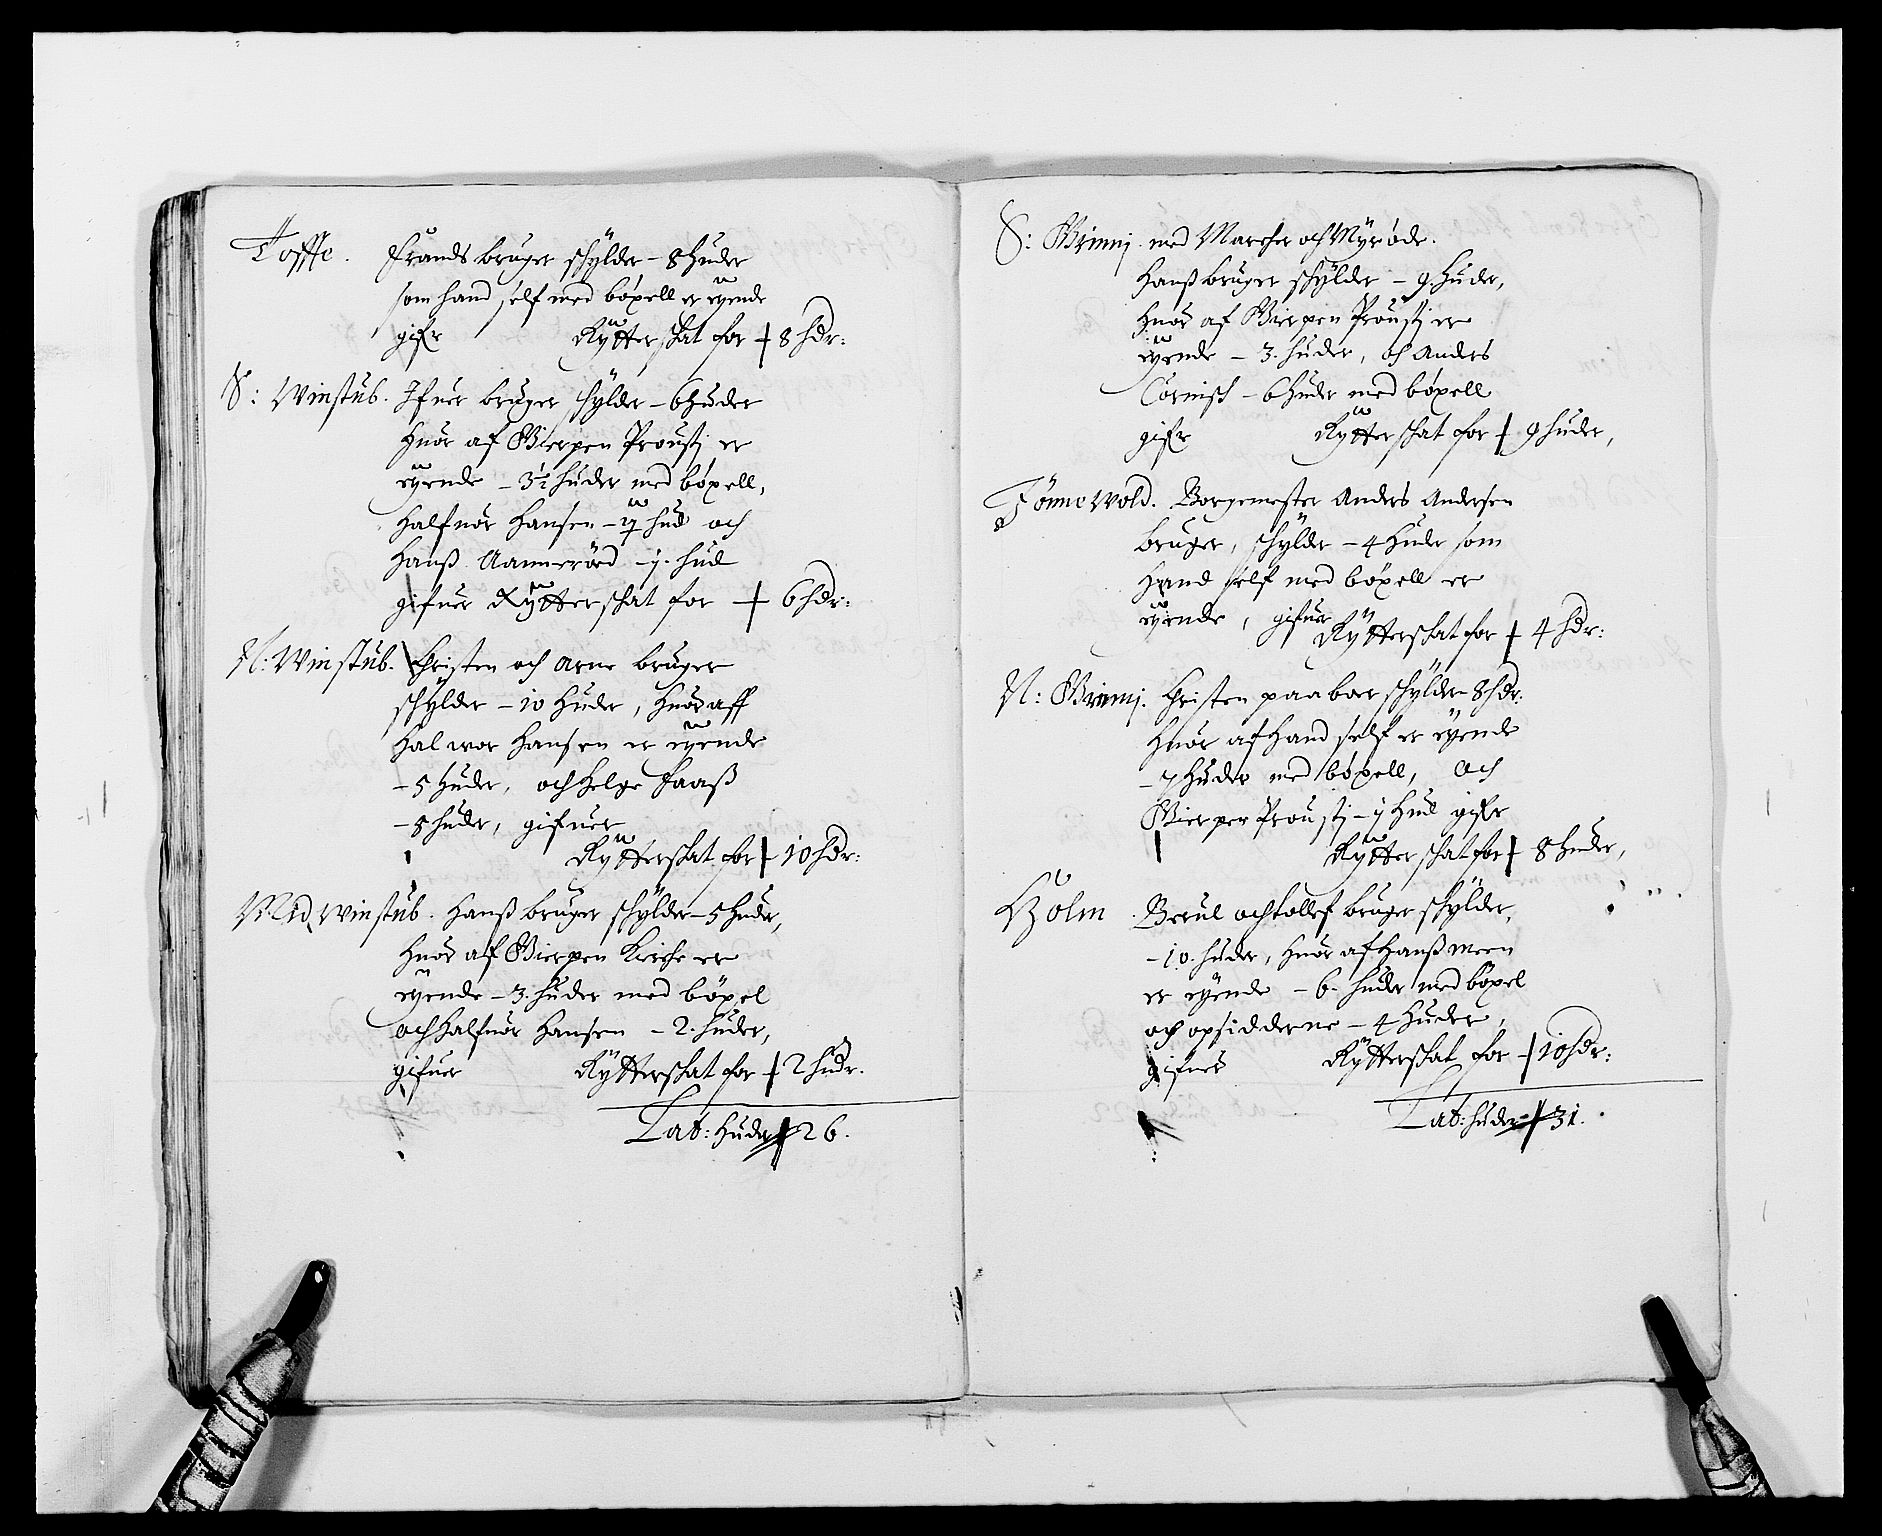 Toffte. Frands bruger schylder – 8 huder
som hand self med böxell er eyende
gifr Rytterschat for – 8 hdr:
S: Winstub. Ifuer bruger schylder – 6 huder
huor af Bierpen Prousti er
eyende – 3½ huder med böxell,
Halfuor Hansen – hud och
Hanß Aannerröed – 1. hud
gifuer Rytterschat for – 6 hdr:
N: Winstub. Christen och Arne bruger
schylder – 10 huder, huor aff
Halwor Hansen er eyende
– 5 huder, och Helge Faaß
– 5 huder, gifuer
Rytterschat for – 10 hdr:
Mid winstub. Hanß bruger schylder – 5 huder,
huor af Bierpen Kirche er
eyende – 3. huder med böxel
och Halfuor Hansen – 2. huder,
gifuer Rytterschat for – 2 hudr.
Lat: huder – 26.
S: med och Myröde.
Hanß bruger schylder – 9 huder,
huor af Bierpen Prousti er
eyende – 3. huder, och Anders
– 6 huder med böxell
gifr Rytterschat for – 9 huder,
Tönnewold. Borgemester Anders Andersen
bruger, schylder – 4 huder som
hand self med böxell er
eyende, gifuer
Rytterschat for – 4 hdr:
N: Christen paaboer schylder 8 hdr:
huor af hand self er eyende
– 7 huder med böxell, och
Bierpen Prousti – 1 hud gifr
Rytterschat for – 8 huder,
Holm. Berul och Tollef bruger schylder,
– 10. huder, huor af Hanß Meen
er eyende – 6. huder med böxel
och opsidderne – 4 huder,
gifuer Rytterschat for – 10 hdr:
Lat: huder – 31.